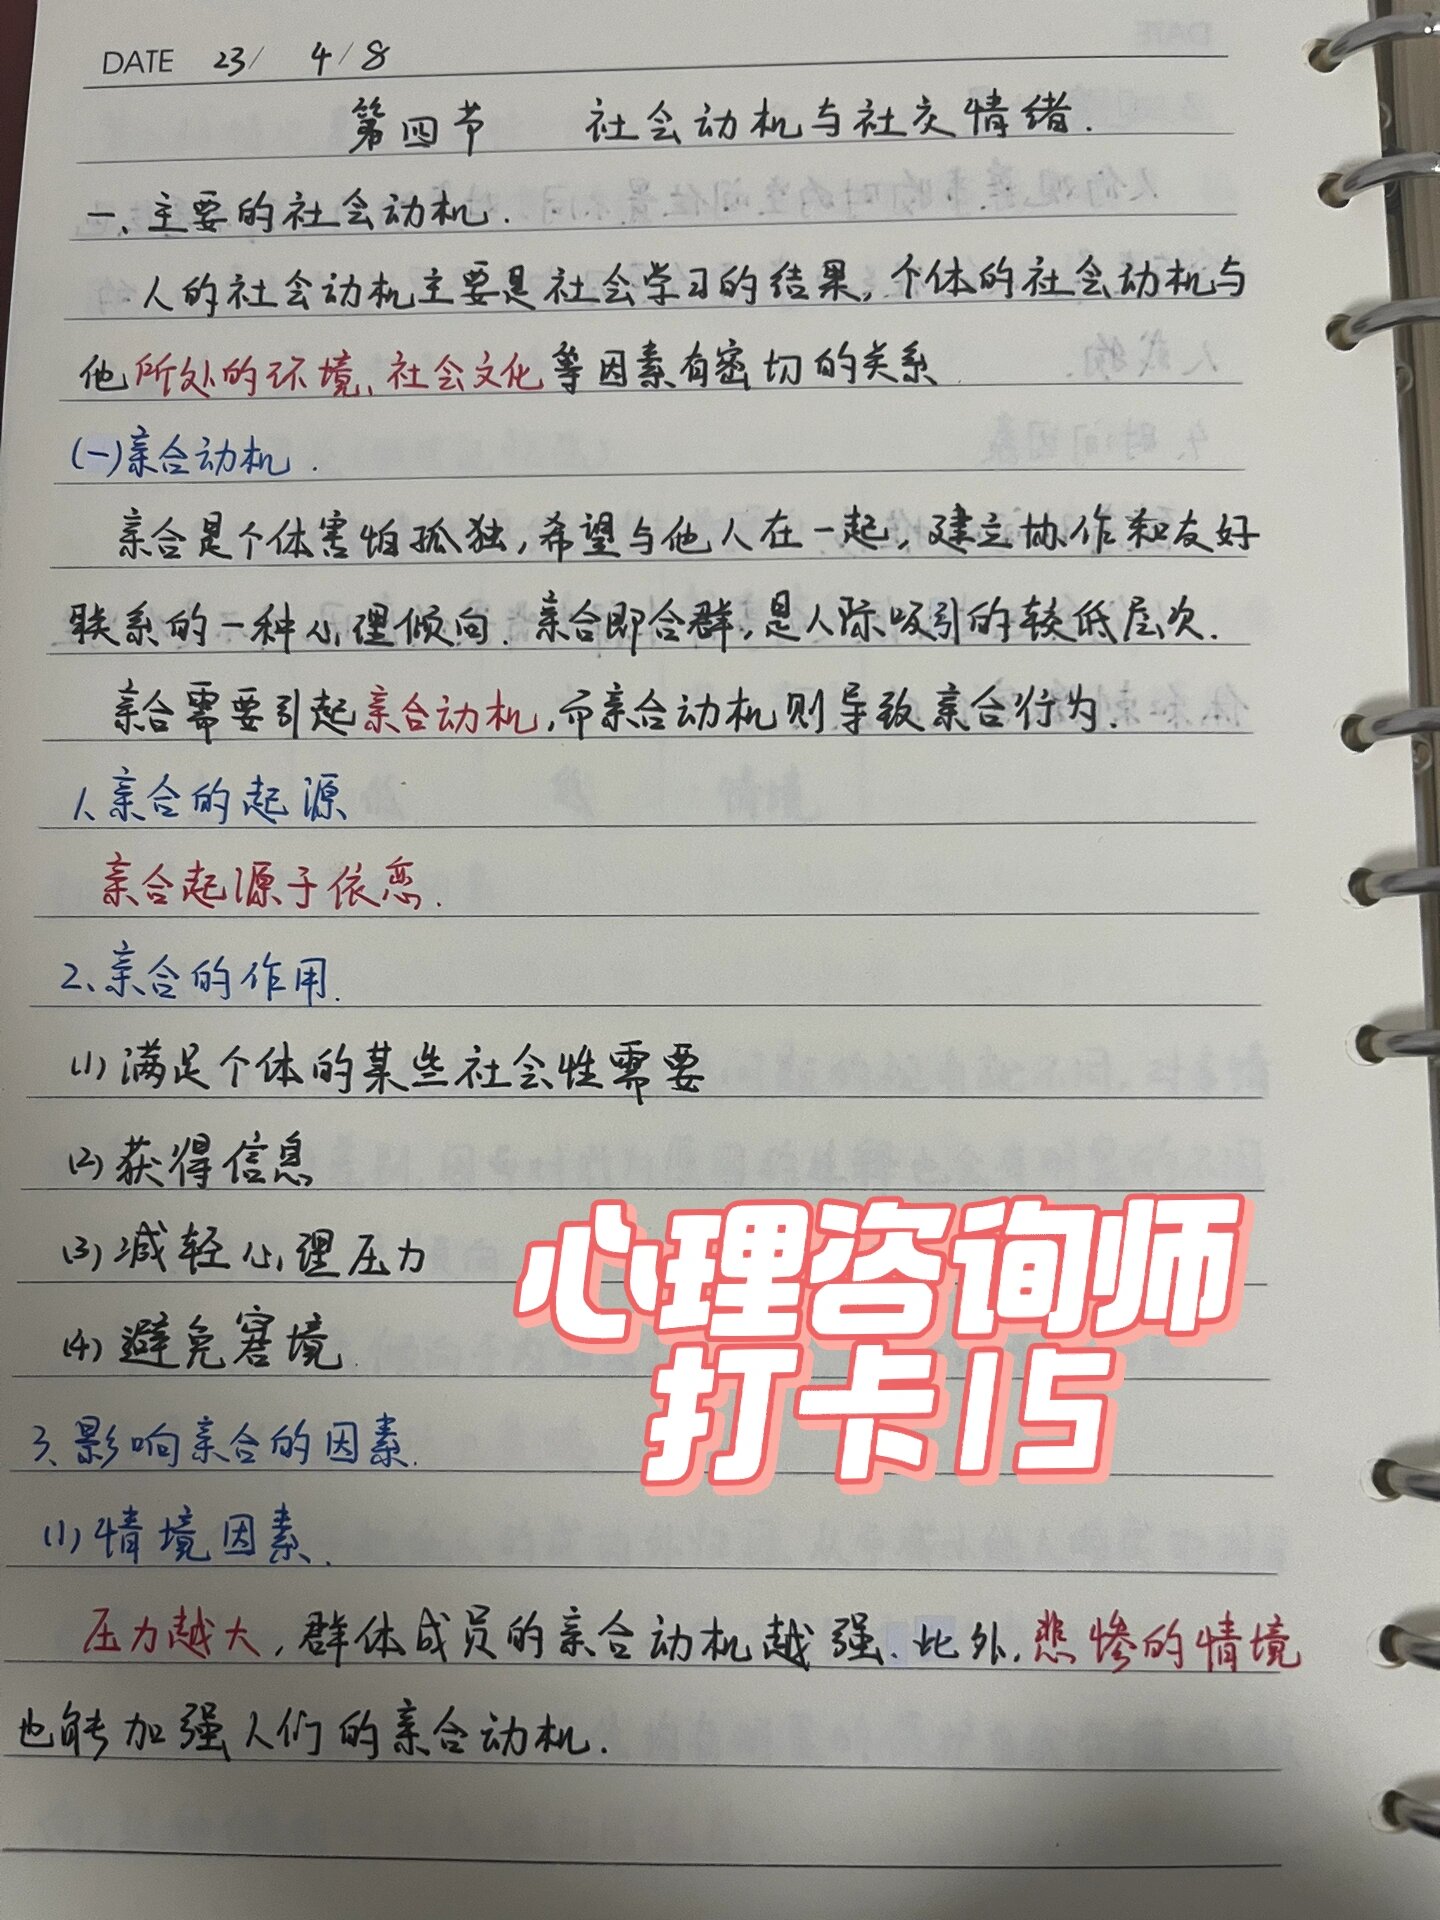 DATE 23/ 4/8
第四节 社会动机与社交情绪.
一、主要的社会动机.
人的社会动机主要是社会学习的结果,个体的社会动机与
他所处的环境、社会文化等因素有密切的关系.
(一)亲合动机.
亲合是个体害怕孤独,希望与他人在一起,建立协作和友好
联系的一种心理倾向.亲合即合群,是人际吸引的较低层次.
亲合需要引起亲合动机,而亲合动机则导致亲合行为.
1、亲合的起源
亲合起源于依恋.
2、亲合的作用.
(1)满足个体的某些社会性需要
(2)获得信息
(3)减轻心理压力
(4)避免窘境.
3、影响亲合的因素.
(1)情境因素.
压力越大,群体成员的亲合动机越强.此外,悲惨的情境
也能加强人们的亲合动机.
心理咨询师
打卡15